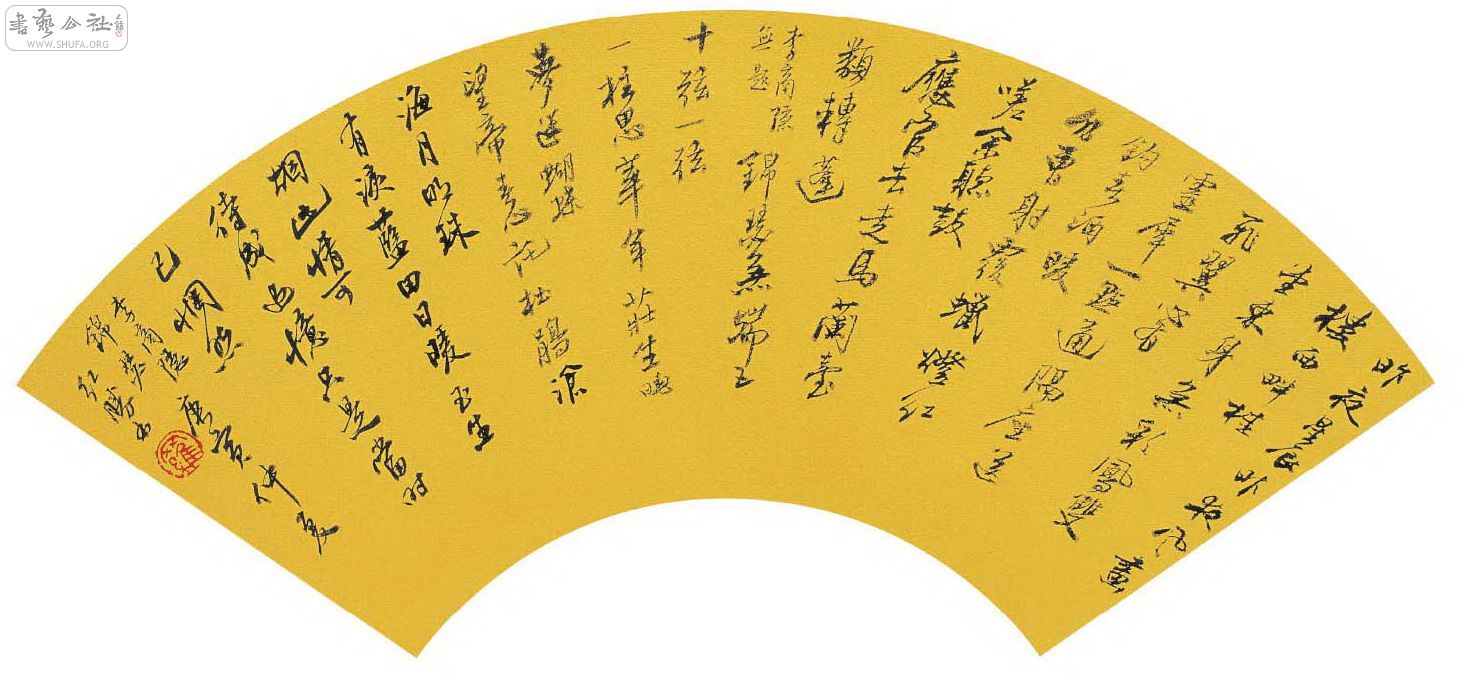 書藝公社
WWW.SHUFA.ORG
昨夜星辰昨夜風畫
樓西畔桂
堂東身無彩鳳雙
飛翼心有
靈犀一點通隔座送
鈎春酒暖
分曹射覆蠟燈紅
嗟余聽鼓
應官去走馬蘭臺
類轉蓬
李商隱
無題
錦瑟無端五
十弦一弦
一柱思華年莊生曉
夢迷蝴蝶
望帝春心託杜鵑滄
海月明珠
有淚藍田日暖玉生
烟此情可
待成追憶只是當時
已惘然 庚寅仲夏
李商隱
錦瑟 紅勝書